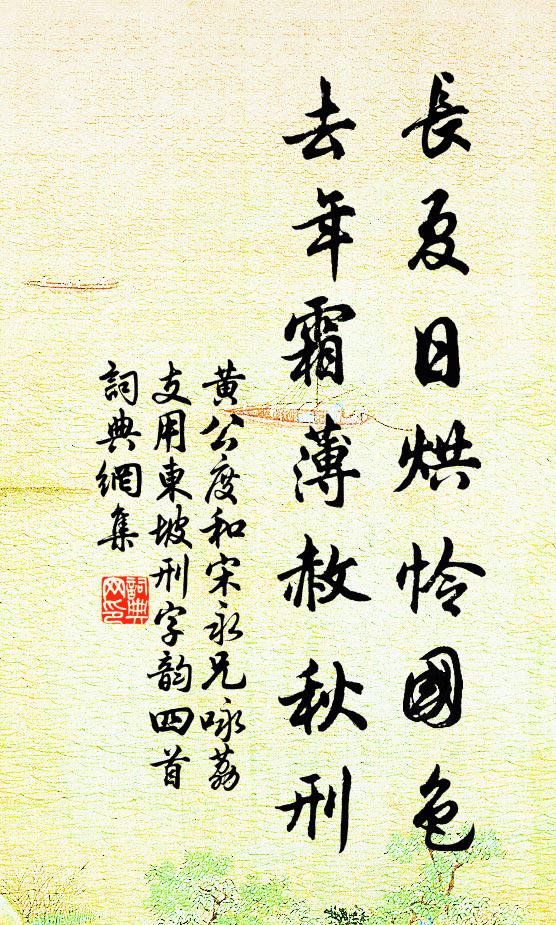 長夏日烘怜國色
去年霜薄赦秋刑
黄公度和宋永兄咏荔
支用東坡刑字韵四首
詞典網集
詞典
网印